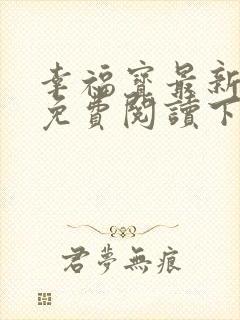 幸福寶最新
免費閱讀下
君夢無痕